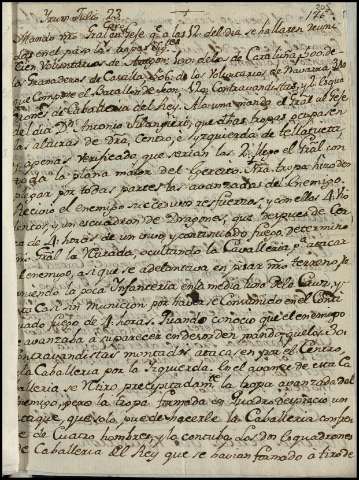 Yrun y Julio 23
Mando nro Gral en Gefe q.e a las 12 del dia se hallaren reuni
dos en el paso las tropas
cien Voluntarios de Aragon, 100 dellos de Cataluña, 300 de
Granaderos de Castilla, 200 de los Voluntarios de Navarra
que Compone el Batallon de Contravandistas, y 2 Esqua
rones de Caballeria del Rey. A la una mando el Gral al Gefe
del dia D.n Antonio que dhas tropas ocupasen
las alturas de Dra, Centro, e Yzquierda de
apenas verificado, que serian las 2, llego el Gral con
toda la plana mayor del Exercito. Nra tropa hizo des
pegar por todas partes las avanzadas del Enemigo.
Recivio el enemigo sucesivos refuerzos, y con ellos 4 Vio
lentos, y un escuadron de Dragones, que despues de Cer
ca de 4 horas de un vivo, y continuado fuego, determino
nro Gral la Retirada, ocultando la Cavalleria, p.a atacar
al enemigo, asi que se adelantava, en pisar nro terreno, po
niendo la poca Infanteria en la media
sta Casi sin municion por haverse Consumido en el Conti
nuado fuego de 4 horas. Quando conocio que el enemigo
se avanzaba a suparecer en desorden mando que los 200
Contravandistas montados, atacasen por el Centro,
y la Caballeria por la Yzquierda. En el avance de esta Ca
balleria se Retiro precipitadam.te la tropa avanzada del
enemigo, pero la tropa formada en Quadro despreció un
ataque, que solo puede hacerle la Caballeria con per
de Cuatro hombres, y la contubo. Los dos Esquadrones
de Caballeria del Rey que se havian formado a tiro de